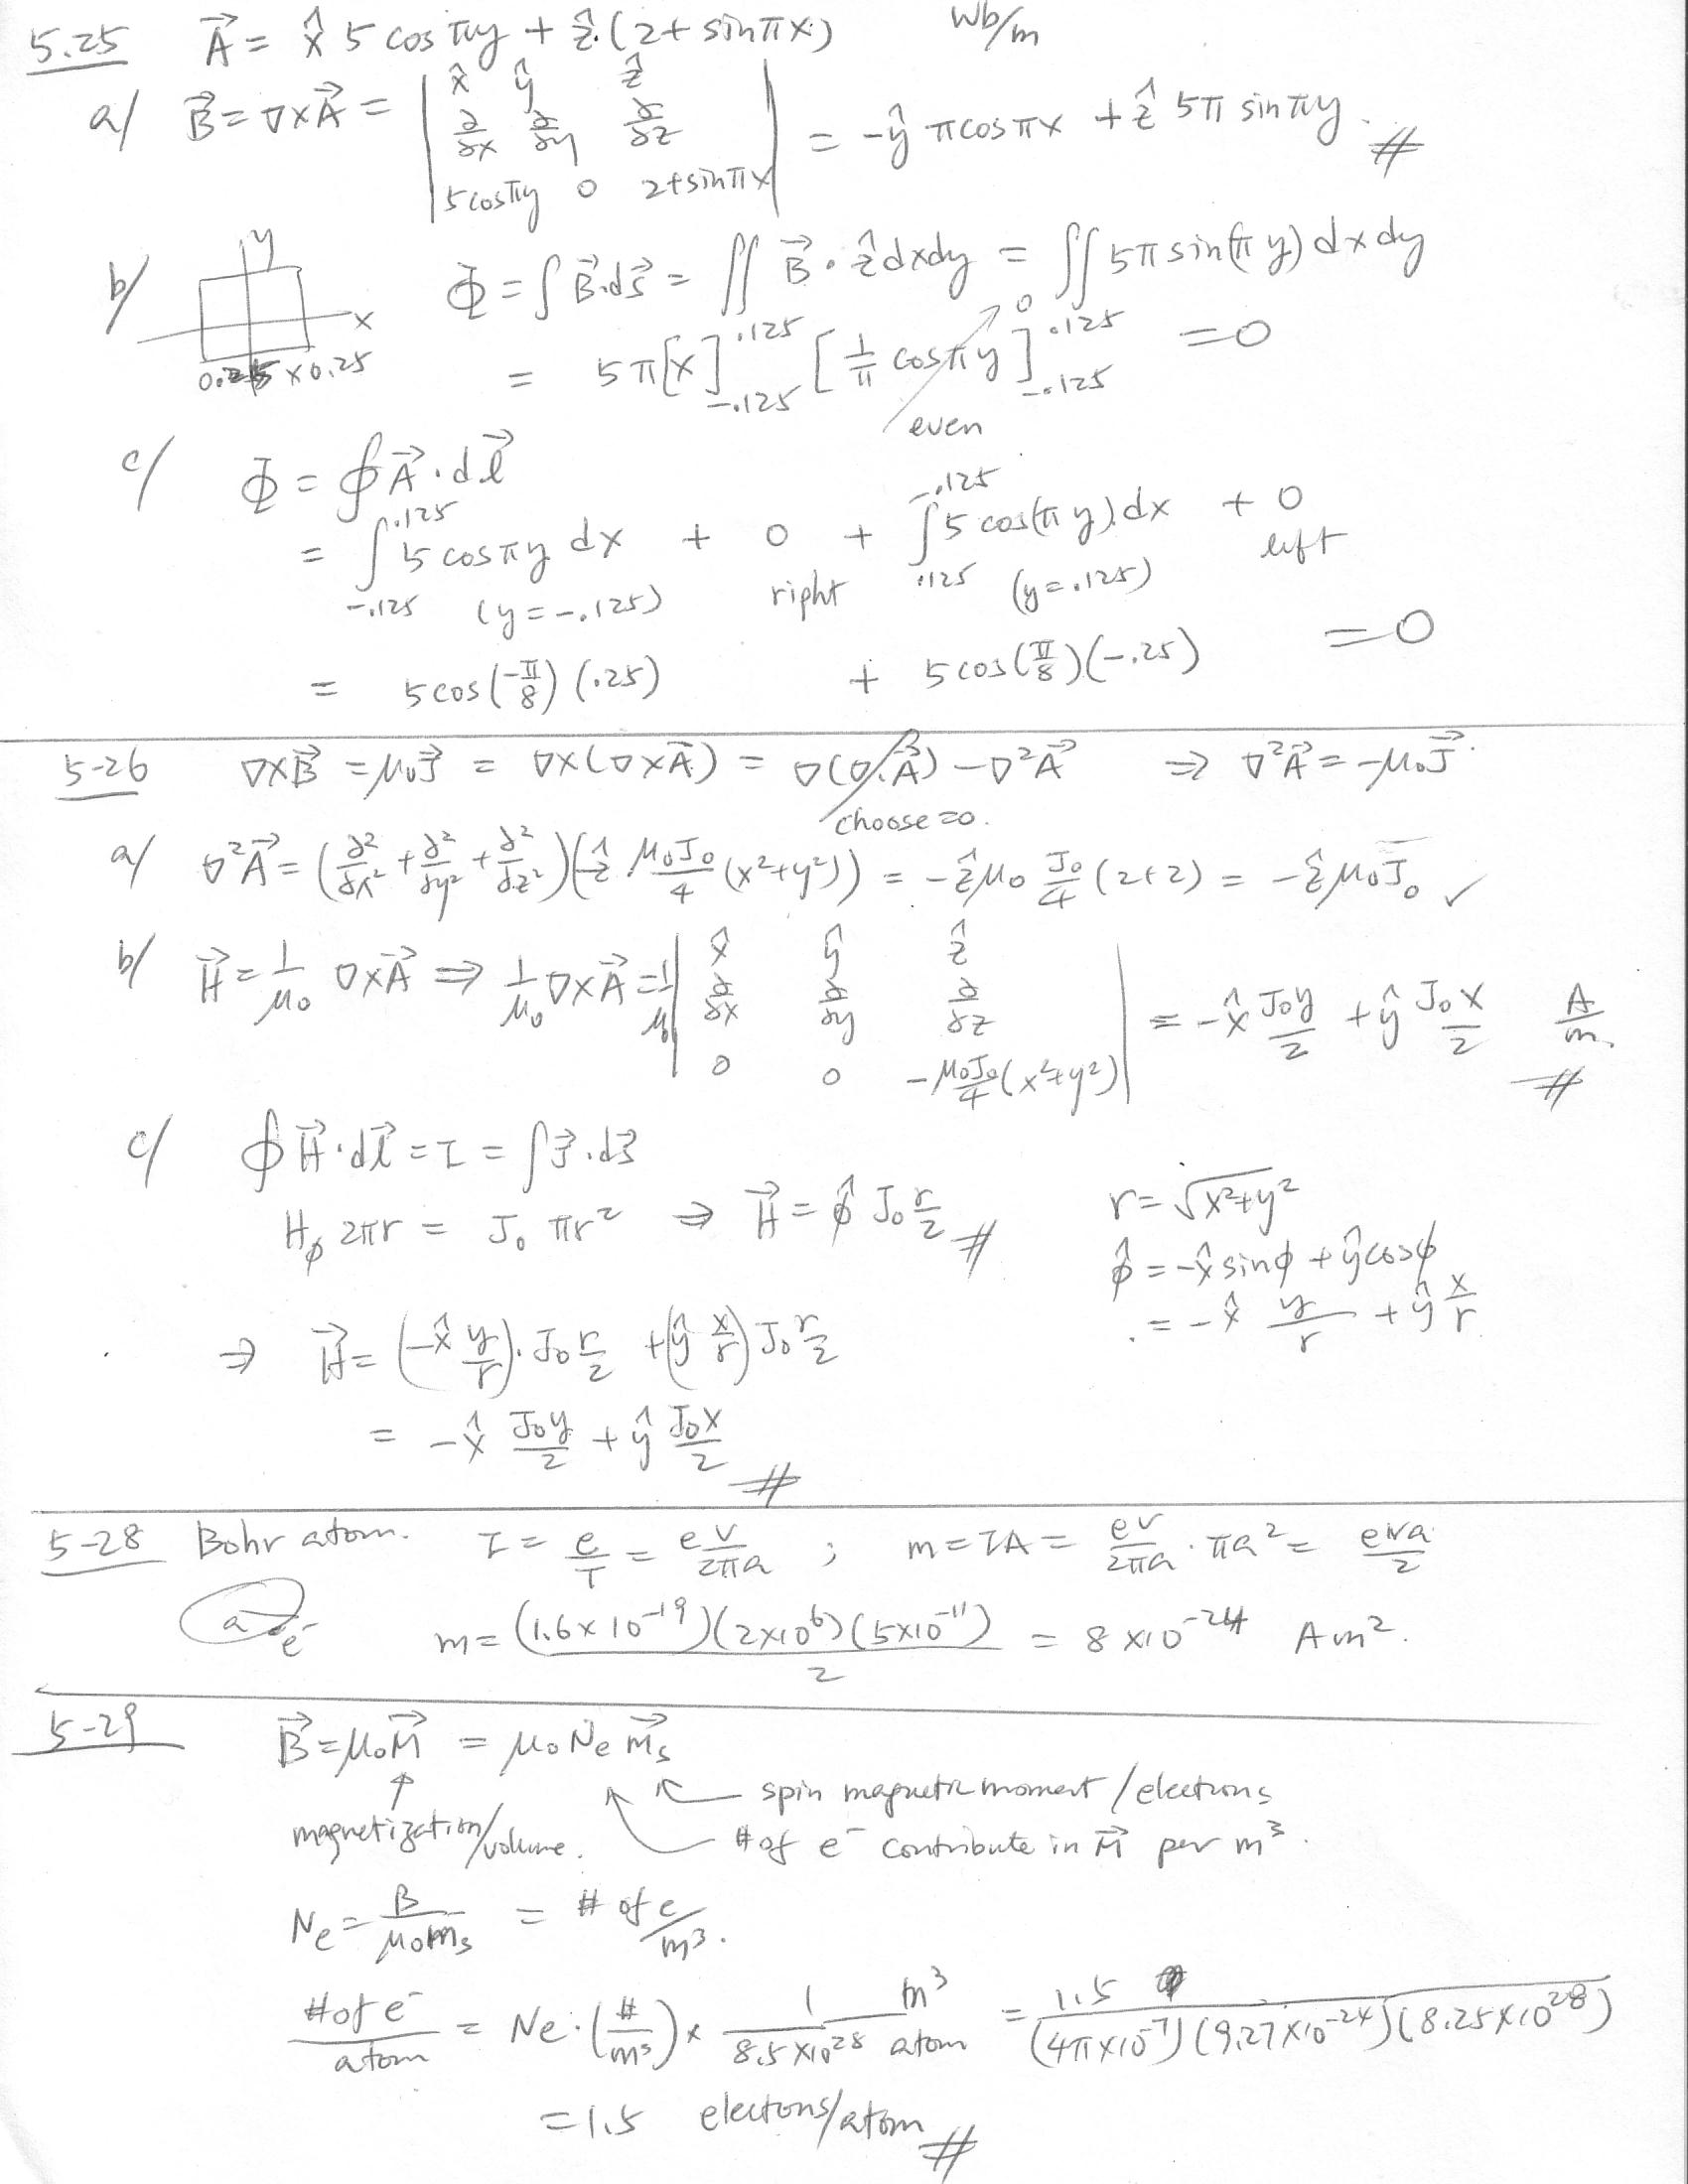 5.25 A⃗ = x̂ 5 cos πy + ẑ (2+ sin πx) Wb/m
a/ B⃗ = ∇×A⃗ = | x̂ ŷ ẑ ; ∂/∂x ∂/∂y ∂/∂z ; 5cosπy 0 2+sinπx | = -ŷ π cos πx + ẑ 5π sin πy #
b/ y x 0.25 x 0.25 Φ = ∫ B⃗·ds⃗ = ∬ B⃗ · ẑ dxdy = ∬ 5π sin(π y) dxdy
= 5π [x]_{-.125}^{.125} [1/π cos πy]_{-.125}^{.125} = 0
0
even
c/ Φ = ∮ A⃗ · dl⃗
= ∫_{-.125}^{.125} 5 cos πy dx + 0 + ∫_{.125}^{-.125} 5 cos(π y) dx + 0
(y = -.125) right (y = .125) left
= 5 cos(-π/8) (.25) + 5 cos(π/8)(-.25) = 0
5-26 ∇×B⃗ = μ₀J⃗ = ∇×(∇×A⃗) = ∇(∇·A⃗) - ∇²A⃗ ⇒ ∇²A⃗ = -μ₀J⃗
choose = 0.
a/ ∇²A⃗ = (∂²/∂x² + ∂²/∂y² + ∂²/∂z²)(-ẑ μ₀J₀/4 (x²+y²)) = -ẑ μ₀ J₀/4 (2+2) = -ẑ μ₀J₀ ✓
b/ H⃗ = 1/μ₀ ∇×A⃗ ⇒ 1/μ₀ ∇×A⃗ = 1/μ₀ | x̂ ŷ ẑ ; ∂/∂x ∂/∂y ∂/∂z ; 0 0 -μ₀J₀/4 (x²+y²) | = -x̂ J₀y/2 + ŷ J₀x/2 A/m. #
c/ ∮ H⃗·dl⃗ = I = ∫ J⃗·ds⃗
H_φ 2πr = J₀ πr² ⇒ H⃗ = φ̂ J₀ r/2 # r = √(x²+y²)
φ̂ = -x̂ sinφ + ŷ cosφ
= -x̂ y/r + ŷ x/r
⇒ H⃗ = (-x̂ y/r)·J₀ r/2 + (ŷ x/r) J₀ r/2
= -x̂ J₀y/2 + ŷ J₀x/2 #
5-28 Bohr atom. I = e/T = e v/2πa ; m = IA = ev/2πa · πa² = eva/2
a e⁻ m = (1.6×10⁻¹⁹)(2×10⁶)(5×10⁻¹¹)/2 = 8×10⁻²⁴ Am².
5-29 B⃗ = μ₀M⃗ = μ₀ Ne m⃗s
spin magnetic moment / electrons
magnetization/volume. # of e⁻ contribute in M⃗ per m³.
Ne = B/μ₀ms = # of e/m³.
# of e⁻/atom = Ne·(#/m³) × 1/8.5×10²⁸ m³/atom = 1.5/(4π×10⁻⁷)(9.27×10⁻²⁴)(8.25×10²⁸)
= 1.5 electons/atom #